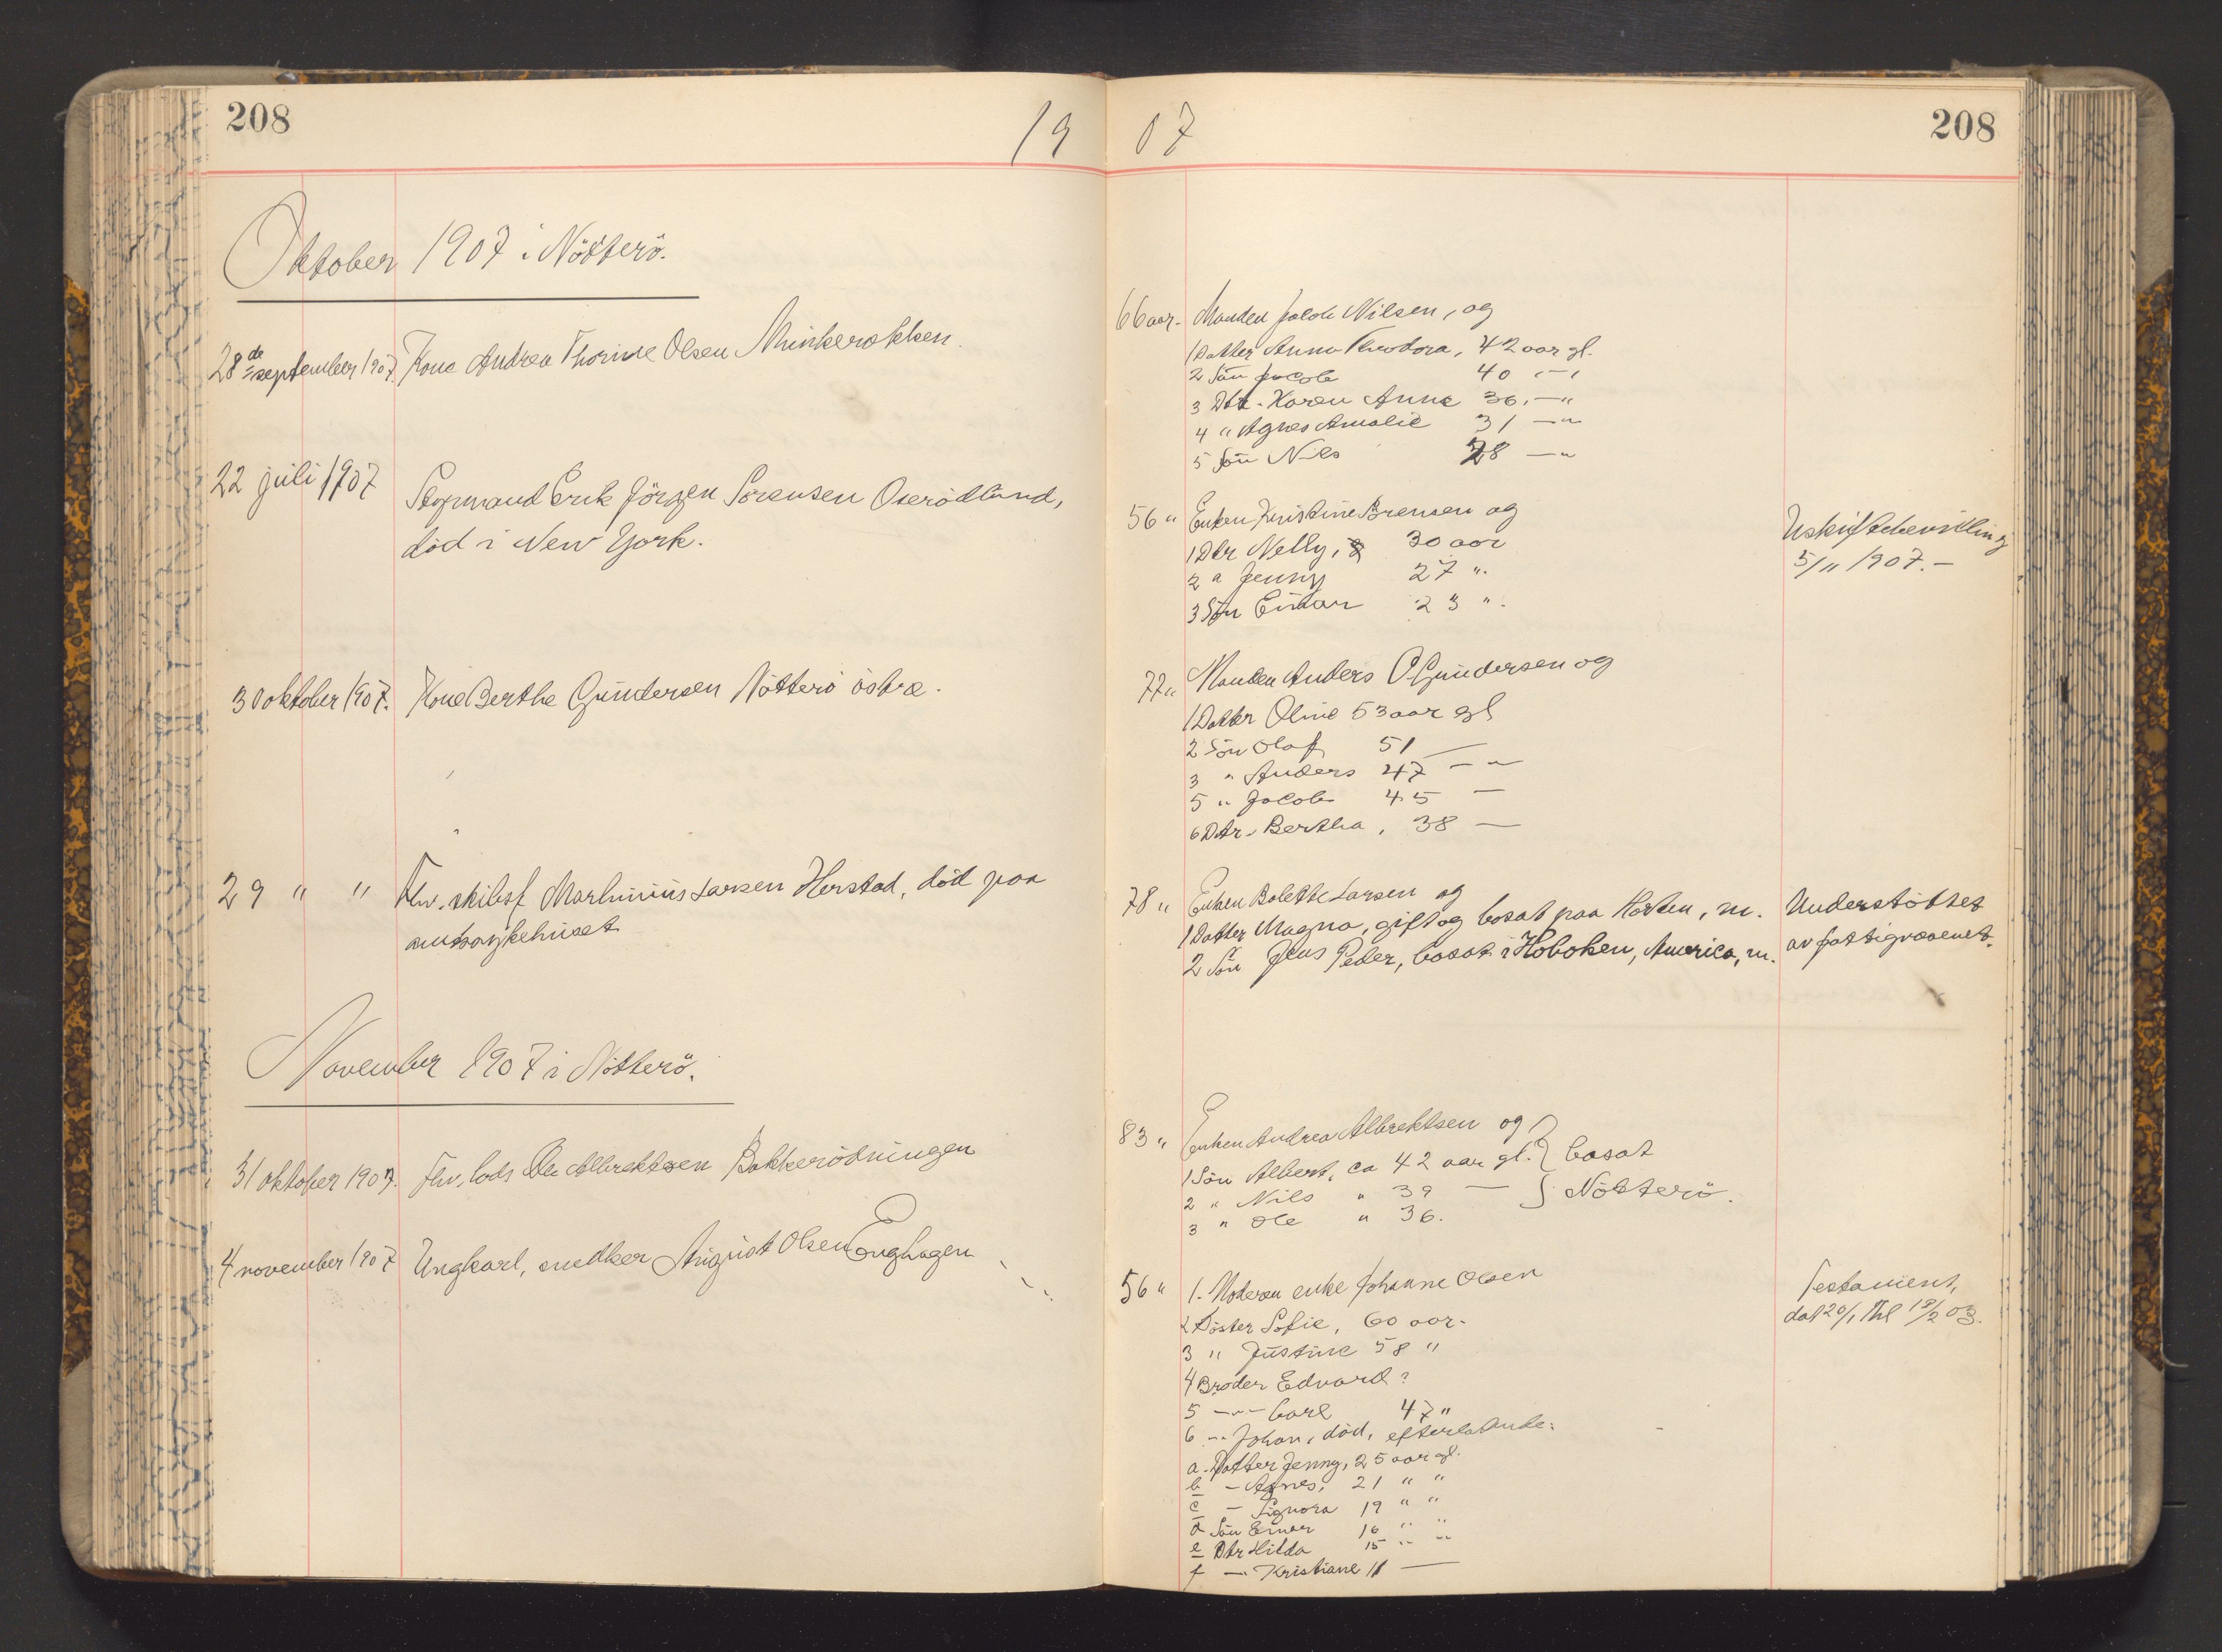 208
19 07
208
Oktober 1907 i Nötterö.
28de september 1907. Kone Andrea Thorine Olsen Munkerekken.
66 aar. Manden Jacob Nilsen, og
1 Datter Anna Theodora, 42 aar gl.
2 Sön Jacob 40 " — "
3 Dtr. Karen Anna 36, — "
4 " Agnes Amalie 31 — "
5 Sön Nils 28 — "
22 juli 1907 Styrmand Erik Jörgen Sörensen Oserödlund,
död i New York.
56 " Enken Kristine Sörensen og
1 Dtr Nelly, 30 aar
2 " Jenny 27 ".
3 Sön Einar 23 ".
Uskiftebevilling
5/11 1907.-
30 oktober 1907. Kone Berthe Gundersen Nötterö östre.
77 " Manden Anders O. Gundersen og
1 Datter Oline 53 aar gl
2 Sön Olaf 51 —
3 " Anders 47 — "
5 " Jacob 45 —
6 Dtr. Bertha, 38 —
29 " " Fhv. skibsf. Marthinius Larsen Herstad, död paa
amtssykehuset
78 " Enken Bolette Larsen og
1 Datter Magna, gift og bosat paa Horten, m.
2 Sön Jens Peder, bosat i Hoboken, America, m.
Understöttet
av fattigvæsenet.
November 1907 i Nötterö.
31 oktober 1907. Fhv. lods Ole Albrektsen Bakkerödningen
83 " Enken Andrea Albrektsen og
1 Sön Albert, ca 42 aar gl. bosat
2 " Nils " 39 — Nötterö.
3 " Ole " 36.
4 november 1907 Ungkarl, snedker August Olsen Enghagen
56 " 1. Moderen enke Johanne Olsen
2 Söster Sofie, 60 aar.
3 " Justine 58 "
4 Broder Edvard?
5 — " — Carl 47 "
6 — " Johan, död, efterlatende:
a. Datter Jenny, 25 aar gl.
b — Agnes, 21 " "
c — Signora 19 " "
d Sön Einar 16 " "
e Dtr Hilda 15 " "
f — Kristiane 11 —
Testament,
dat 20/1 Thl 18/2 03.